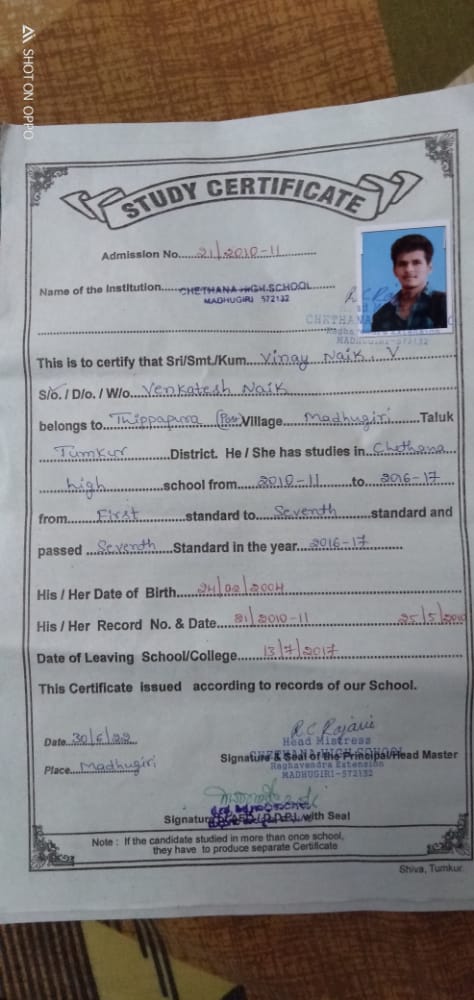 SHOT ON OPPO
STUDY CERTIFICATE
Admission No....21/2010-11
Name of the Institution....CHETHANA HIGH SCHOOL
MADHUGIRI 572132
This is to certify that Sri/Smt./Kum....Vinay Naik. V
S/o. / D/o. / W/o....Venkatesh Naik
belongs to....Thippapura (Post) Village....Madhugiri....Taluk
....Tumkur....District. He / She has studies in....Chethana
....high....school from....2010-11....to....2016-17
from....First....standard to....Seventh....standard and
passed....Seventh....Standard in the year....2016-17
His / Her Date of Birth....24/02/2004
His / Her Record No. & Date....21/2010-11 25/5/2010
Date of Leaving School/College....13/7/2017
This Certificate issued according to records of our School.
R.C Rajani
Date...30/6/22
Head Mistress
CHETHANA HIGH SCHOOL
Signature & Seal of the Principal/Head Master
Place...Madhugiri
Raghavendra Extension
MADHUGIRI-572132
Note : If the candidate studied in more than once school,
they have to produce separate Certificate
Shiva, Tumkur.